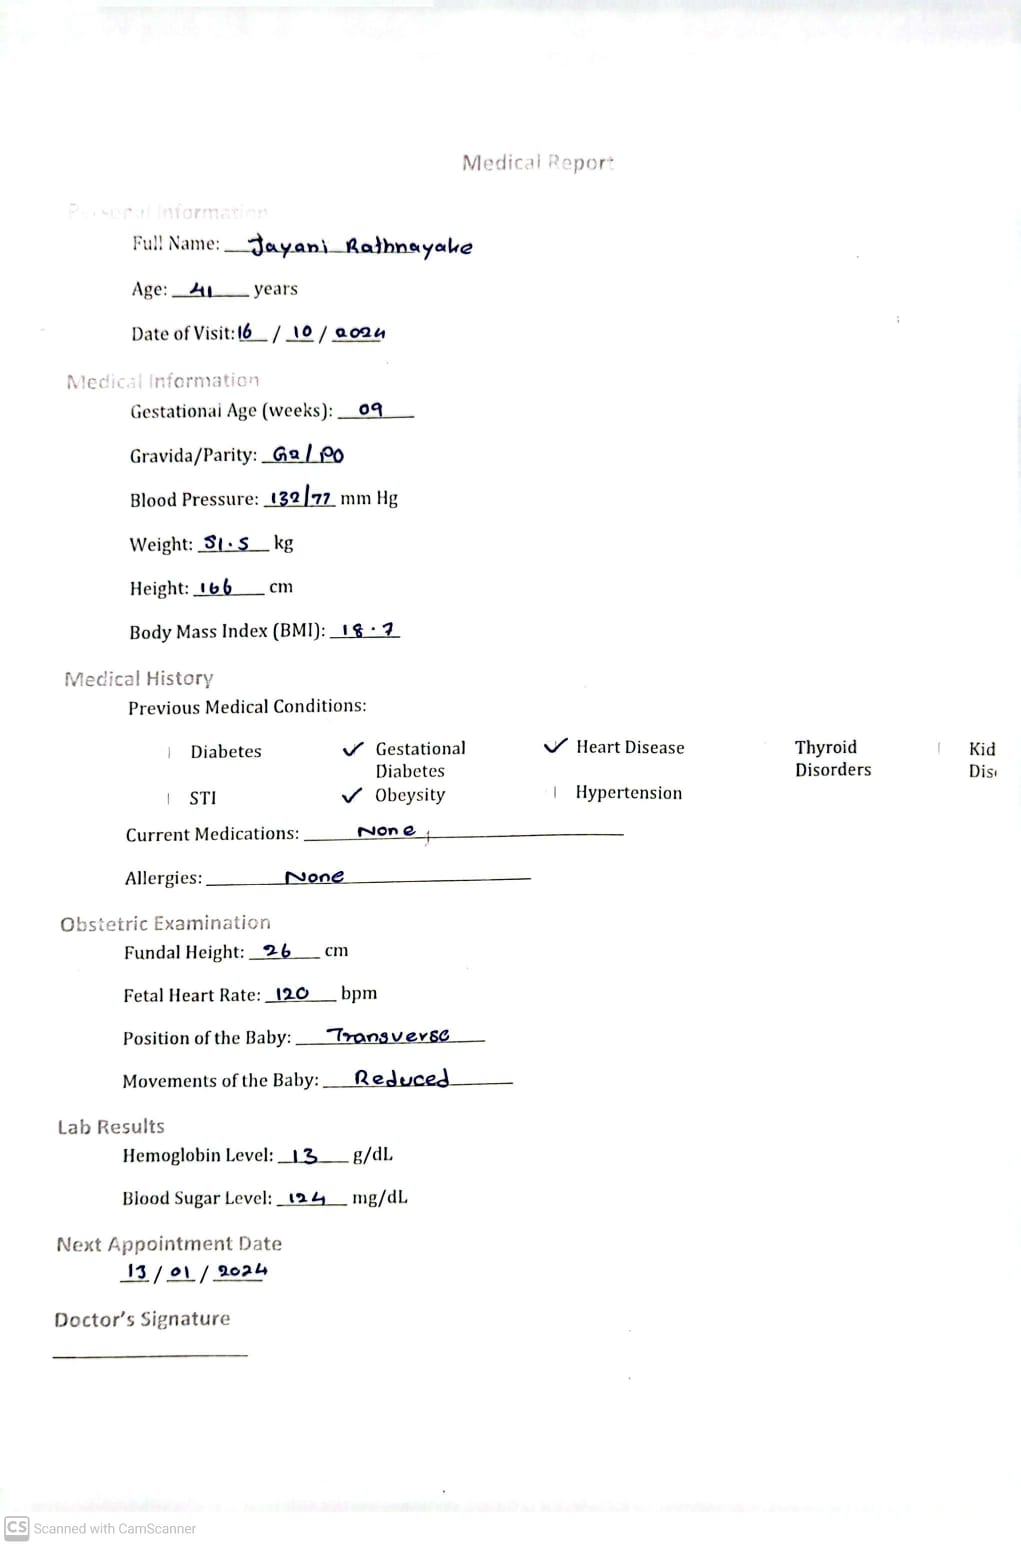 Medical Report
Personal Information
Full Name: Jayani Rathnayake
Age: 41 years
Date of Visit: 16 / 10 / 2024
Medical Information
Gestational Age (weeks): 09
Gravida/Parity: G2/P0
Blood Pressure: 132/77 mm Hg
Weight: 51.5 kg
Height: 166 cm
Body Mass Index (BMI): 18.7
Medical History
Previous Medical Conditions:
Diabetes ✓ Gestational Diabetes ✓ Heart Disease Thyroid Disorders Kid
STI ✓ Obeysity Hypertension
Current Medications: None
Allergies: None
Obstetric Examination
Fundal Height: 26 cm
Fetal Heart Rate: 120 bpm
Position of the Baby: Transverse
Movements of the Baby: Reduced
Lab Results
Hemoglobin Level: 13 g/dL
Blood Sugar Level: 124 mg/dL
Next Appointment Date
13 / 01 / 2024
Doctor's Signature
CS Scanned with CamScanner